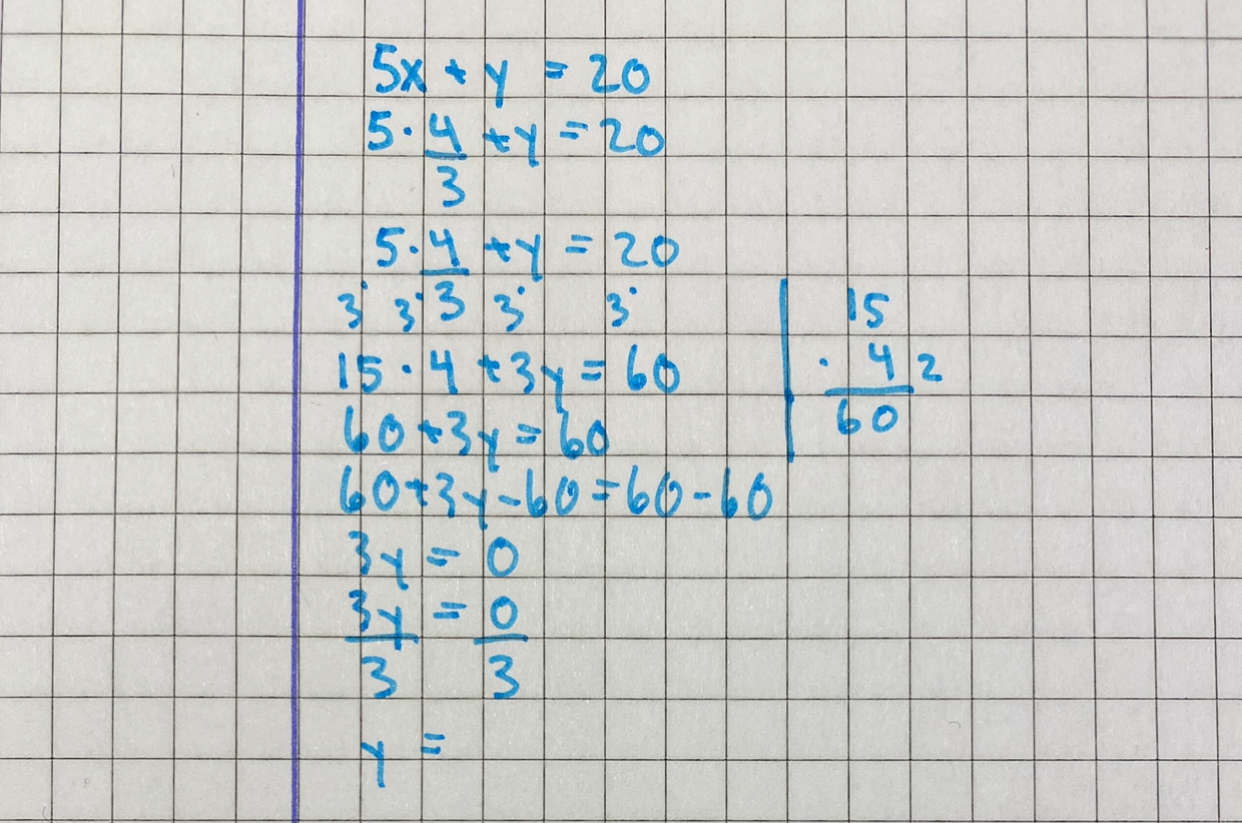 5x + y = 20
5 · 4/3 + y = 20
5 · 4/3 + y = 20
3· 3· 3· 3·
15 · 4 + 3y = 60
60 + 3y = 60
60 + 3y - 60 = 60 - 60
3y = 0
3y/3 = 0/3
y =
15
· 4 2
60